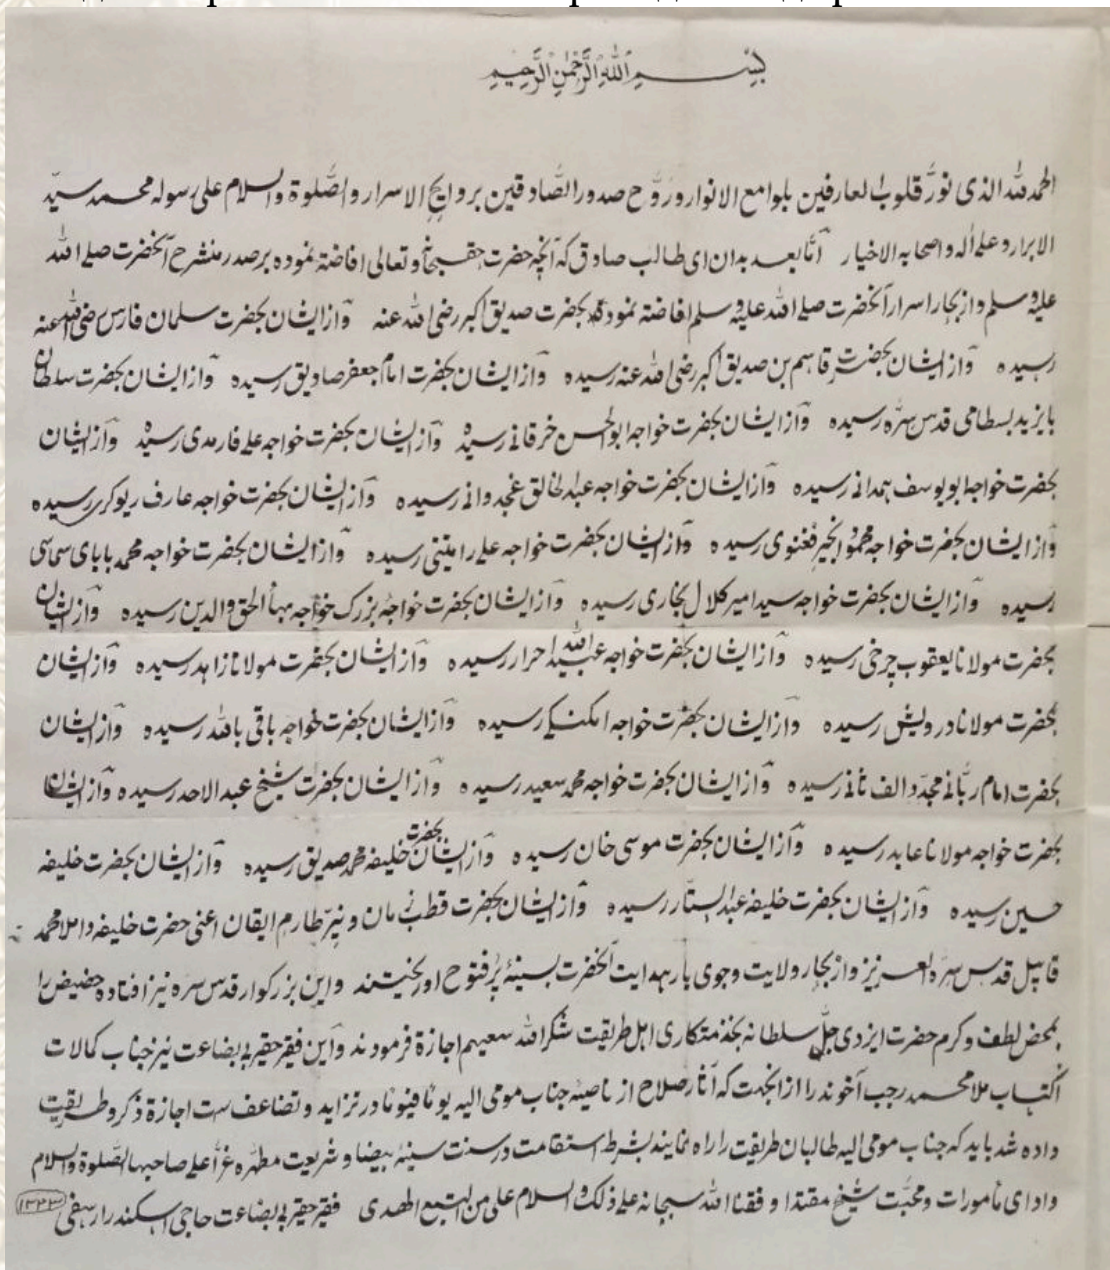 بسم الله الرحمن الرحيم
الحمد لله الذی نوّر قلوب العارفین بلوامع الانوار و روّح صدور الصّادقین بروایح الاسرار والصّلوة والسلام علی رسوله محمد سیّد
الابرار و علی اله واصحابه الاخیار امّا بعد بدان ای طالب صادق که آنچه حضرت حق سبحانه و تعالی افاضه نموده بر صدر منشرح آنحضرت صلی الله
علیه وسلم و از بحار اسرار آنحضرت صلی الله علیه وسلم افاضه نموده بحضرت صدیق اکبر رضی الله عنه و از ایشان بحضرت سلمان فارس رضی الله عنه
رسیده و از ایشان بحضرت قاسم بن صدیق اکبر رضی الله عنه رسیده و از ایشان بحضرت امام جعفر صادیق رسیده و از ایشان بحضرت سلطان
بایزید بسطامی قدس سرّه رسیده و از ایشان بحضرت خواجه ابوالحسن خرقانی رسیده و از ایشان بحضرت خواجه علی فارمدی رسیده و از ایشان
بحضرت خواجه ابویوسف همدانی رسیده و از ایشان بحضرت خواجه عبدالخالق غجدوانی رسیده و از ایشان بحضرت خواجه عارف ریوکری رسیده
و از ایشان بحضرت خواجه محمود انجیر فغنوی رسیده و از ایشان بحضرت خواجه علی رامیتنی رسیده و از ایشان بحضرت خواجه محمد بابای سماسی
رسیده و از ایشان بحضرت خواجه سید امیر کلال بخاری رسیده و از ایشان بحضرت خواجهٔ بزرک خواجه بهاء الحق والدین رسیده و از ایشان
بحضرت مولانا یعقوب چرخی رسیده و از ایشان بحضرت خواجه عبیدالله احرار رسیده و از ایشان بحضرت مولانا زاهد رسیده و از ایشان
بحضرت مولانا درویش رسیده و از ایشان بحضرت خواجه امکنکی رسیده و از ایشان بحضرت خواجه باقی بالله رسیده و از ایشان
بحضرت امام ربّانی مجدّد الف ثانی رسیده و از ایشان بحضرت خواجه محمد سعید رسیده و از ایشان بحضرت شیخ عبد الاحد رسیده و از ایشان
بحضرت خواجه مولانا عابد رسیده و از ایشان بحضرت موسی خان رسیده و از ایشان بحضرت خلیفه محمد صدیق رسیده و از ایشان بحضرت خلیفه
حسین رسیده و از ایشان بحضرت خلیفه عبدالستّار رسیده و از ایشان بحضرت قطب زمان و نیّر طارم ایقان اعنی حضرت خلیفه داملا محمد
قاپیل قدس سرّه العزیز و از بحار ولایت وجوی بار هدایت آنحضرت بسینهٔ پرفتوح او ریختند و این بزرکوار قدس سره نیز افتاده حضیض را
بمحض لطف و کرم حضرت ایزدی جلّ سلطانه بخدمتکاری اهل طریقت شکر الله سعیهم اجازة فرمودند و این فقیر حقیر بی بضاعت نیز جناب کمالات
اکتساب ملا محمد رجب آخوند را از انجهت که آثار صلاح از ناصیهٔ جناب مومی الیه یوماً فیوماً در تزاید و تضاعف ست اجازة ذکر و طریقت
داده شد باید که جناب مومی الیه طالبان طریقت را راه نمایند بشرط استقامت و رست سنت سنیهٔ بیضا و شریعت مطهرهٔ غرّا علی صاحبها الصّلوة والسلام
و ادای مامورات و محبّت شیخ مقتدا و فقنا الله سبحانه علی ذلک والسلام علی من اتبع الهدی فقیر حقیر بی بضاعت حاجی اسکندر ۱۳۲۳